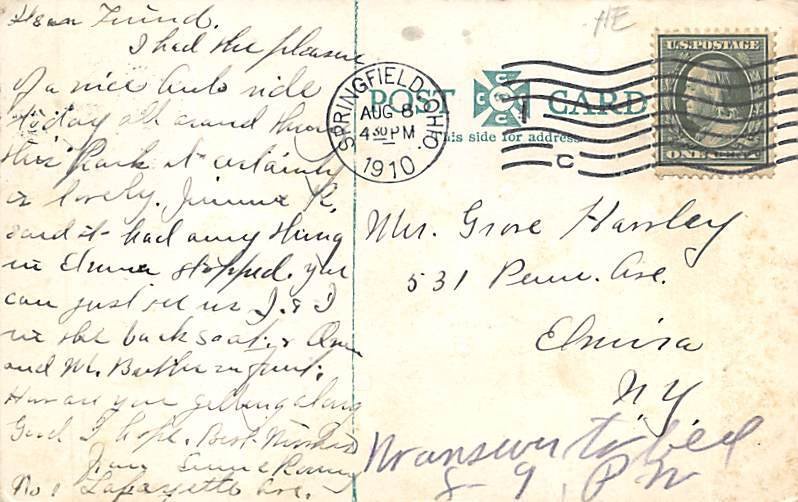 Dear Friend.
I had the pleasure
of a nice Auto ride
today all around thru
this Park it certainly
is lovely. Jimmie R.
said it had any thing
in Elmira stopped. you
can just see us J. & I
in the back seat, &
and Mr. in front.
How are you getting along
Good I hope. Best Wishes
from
No 1 Lafayette Ave.
HE
POST CARD
CCCC
This side for address
SPRINGFIELD, OHIO.
AUG 8
4 30 PM
1910
C
U.S. POSTAGE
ONE CENT
Mrs. Grove
531 Penn. Ave.
Elmira
N Y
No answer to bell
8-9, PM